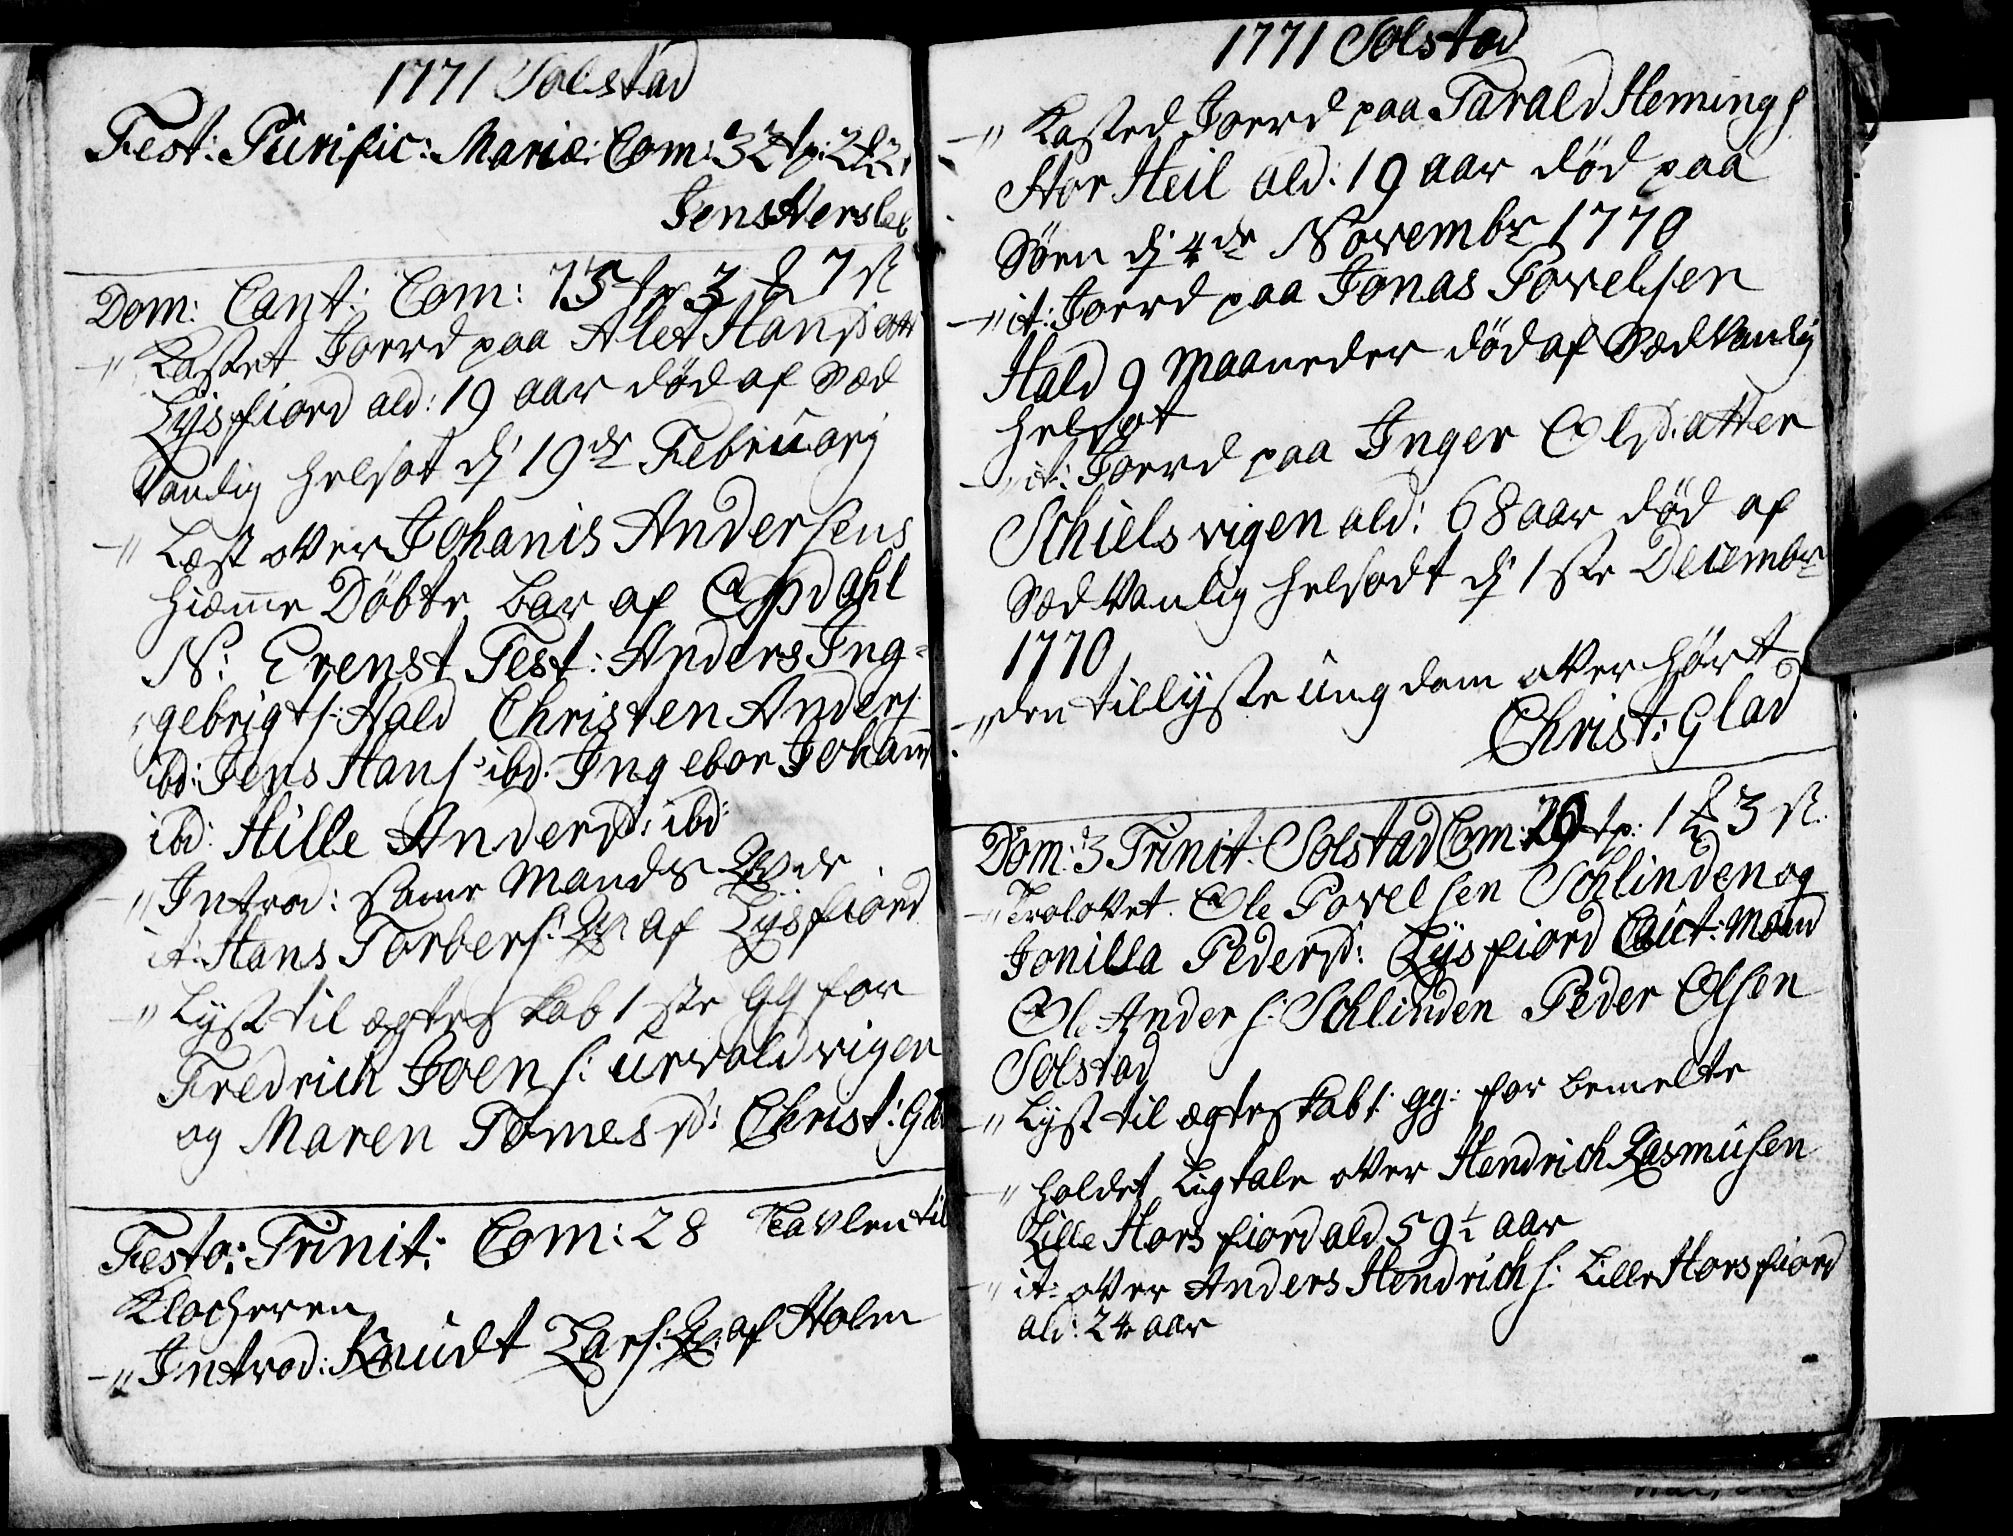 1771 Solstad
Fest: Purific: Mariæ: Com: 32 tp: 2
Jens Hersleb
Dom: Cant: Com: 75 tp 3 & 7 st
-" Kastet Joerd paa Alet Hansdatt
Lysfiord ald: 19 aar død af Sæd
vanlig helsot dj 19de Februarj
-" Læst over Johanis Andersens
hiemme Döbte bar af Opdahl
N: Erenst Test: Anders Ing=
gebrigts: Hald Christen Anders:
ibd: Jens Hans: ibd. Ingebor Johann
ibd: Hille Andersd: ibd:
-" Introd: samme Mands Qvde
it: Hans Torbers: Qv: af Lysfiord
-" Lyst til ægteskab 1ste gg for
Fredrich Joens: urvoldvigen
og Maren Tomesd: Christ: Glad
Festo: Trinit: Com: 28 Tavlen til
Klocheren
-" Introd: Knudt Lars: Qv: af Holm
1771 Solstad
-" Kasted Joerd paa Tarald Hemings
Hor Heil ald: 19 aar død paa
Søen dj 4de Novembr 1770
-" it: Joerd paa Jonas Povelsen
Hald 9 Maaneder død af Sædvanlig
helsot
-" it: Joerd paa Inger Olsdatter
Schielsvigen ald: 68 aar død af
Sædvanlig helsodt dj 1ste Decembr
1770
-" den tillyste ungdom overhørt
Christ: Glad
Dom: 3 Trinit: Solstad Com: 29 tp: 1 & 3 st.
-" Trolovet. Ole Povelsen Schlinden og
Jonilla Pedersd: Lysfiord Caut: Mænd
Ole Anders: Schlinden Peder Olsen
Solstad
-" Lyst til ægteskab 1: gg: for bemelte
-" holdet Ligtale over Hendrich Rasmusen
Lille Horsfiord ald 59½ aar
-" it: over Anders Hendrichs: Lille Horsfiord
ald: 24 aar